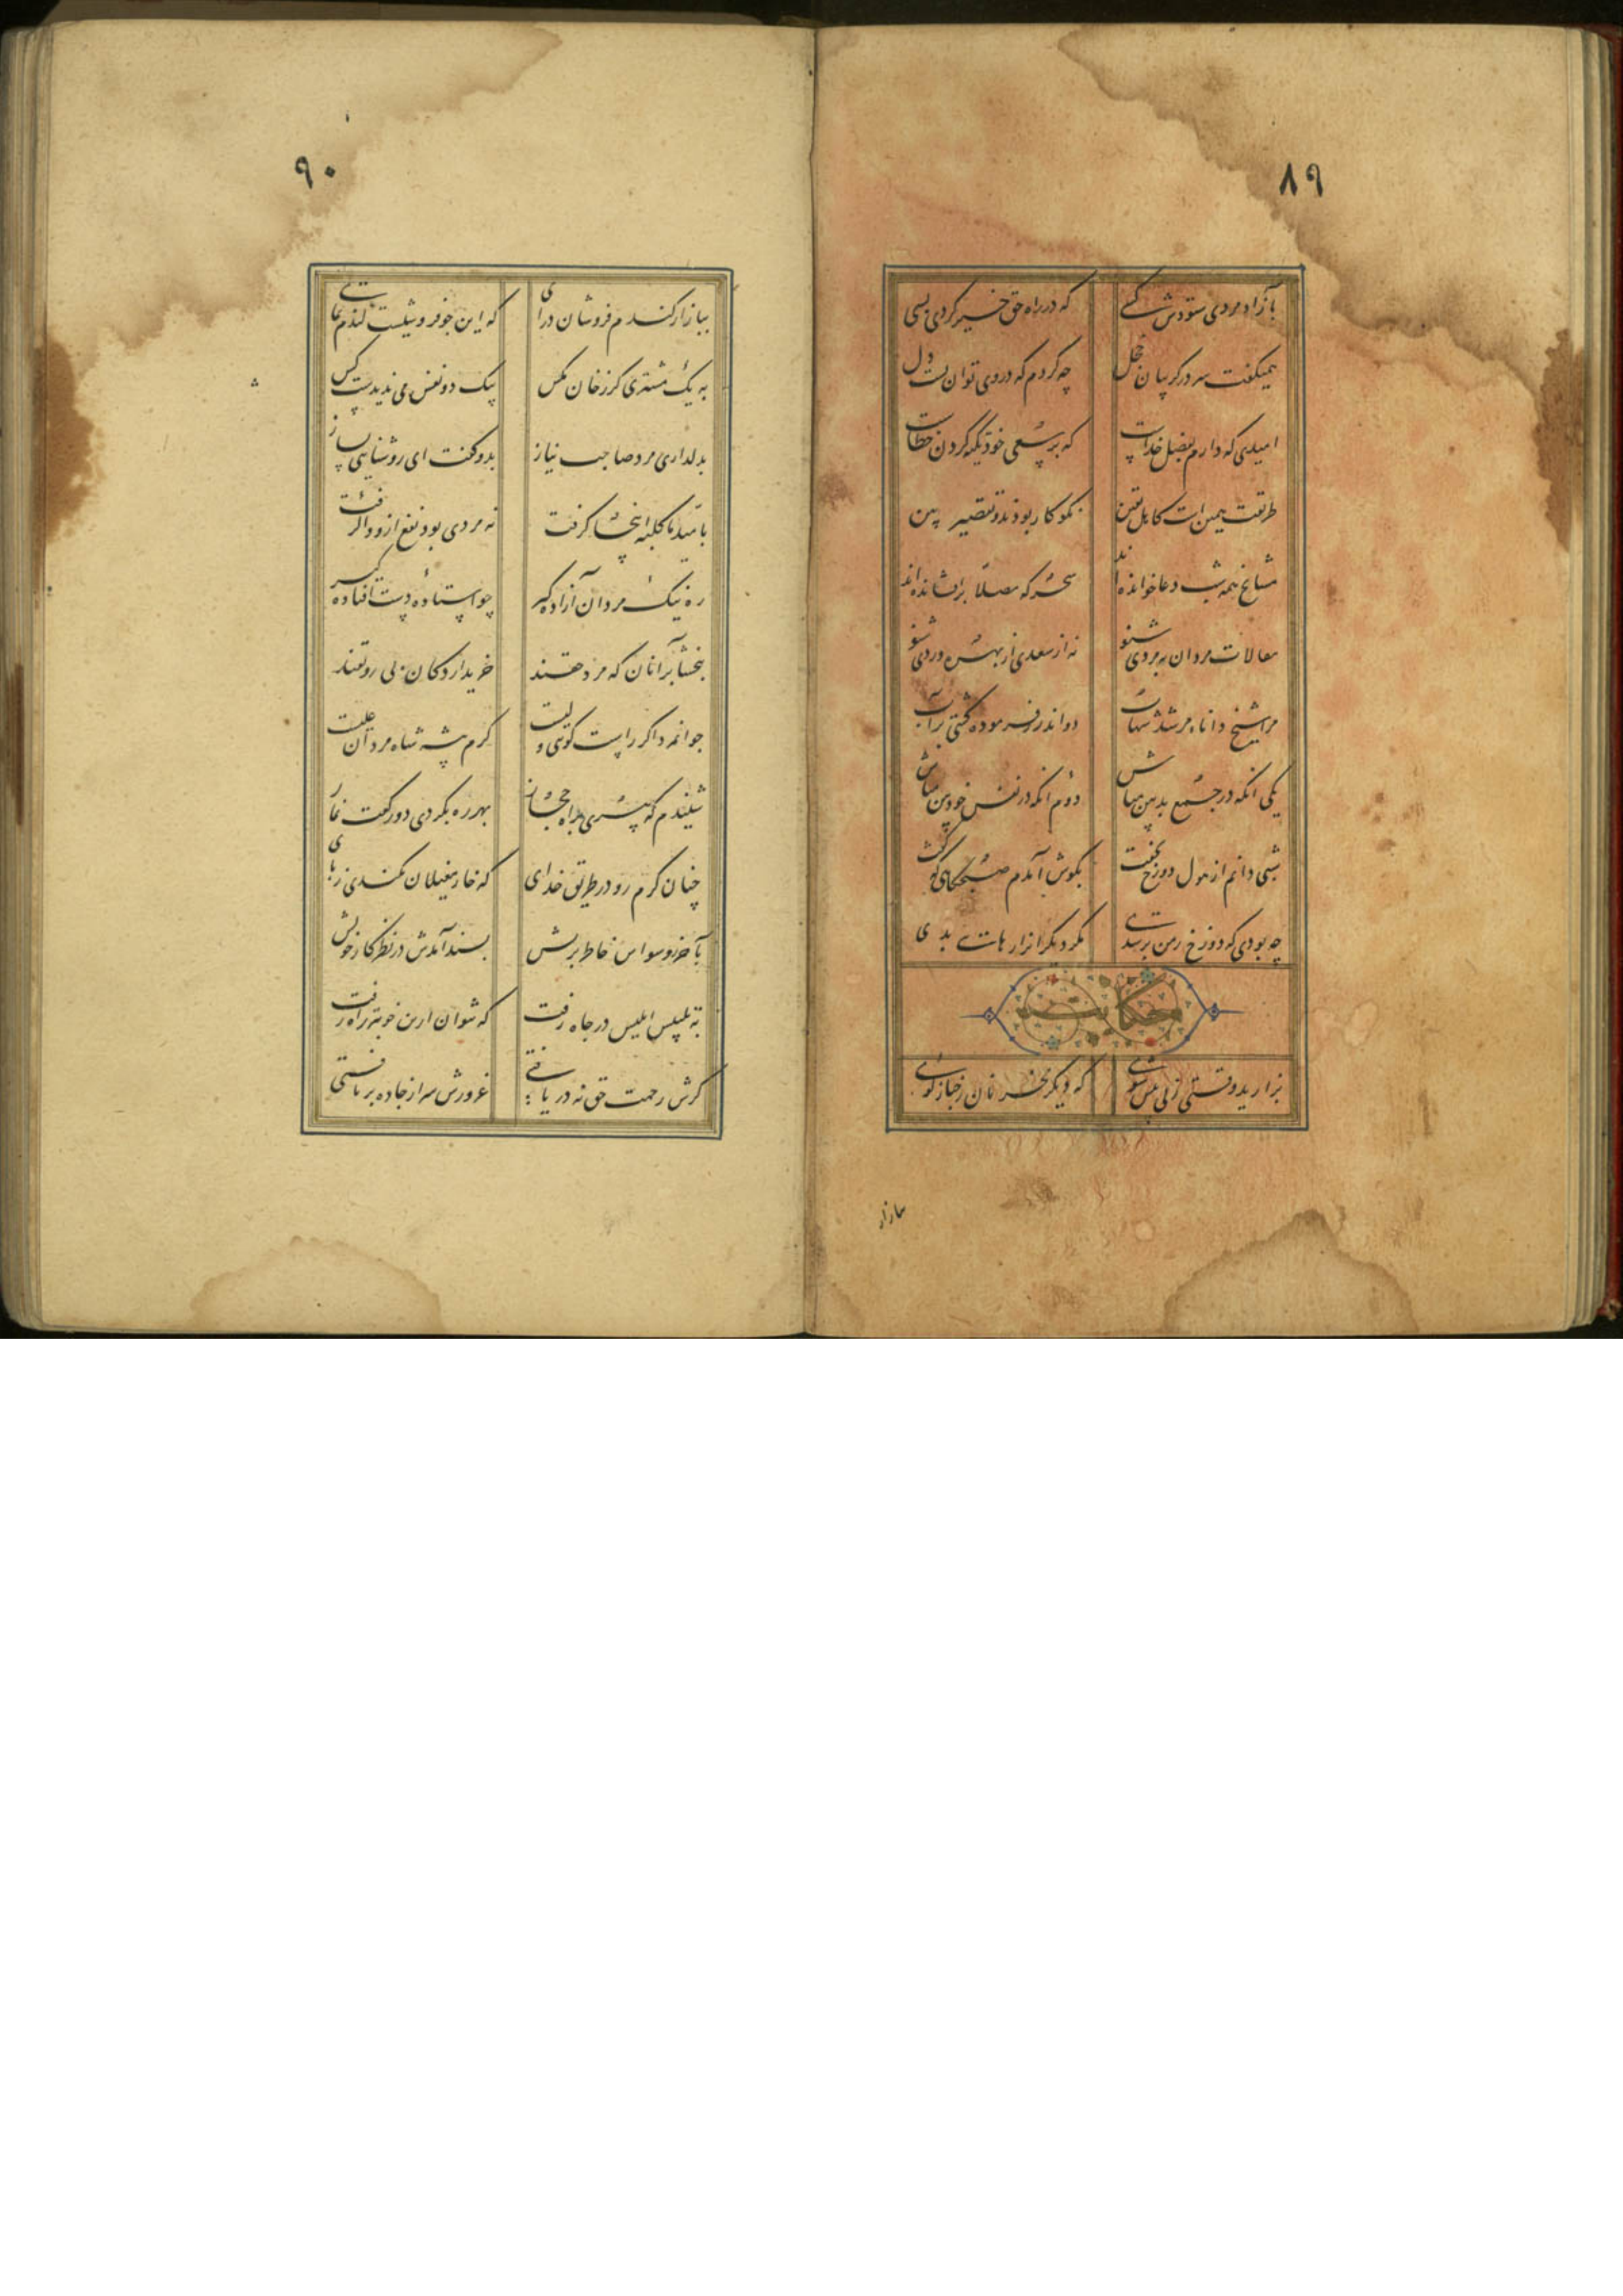 ۸۹
بآزادمردی ستودش کسی که در راه حق خیر کردی بسی
همیگفت سر در گریبان خجل چه کردم که در وی توان بست دل
امیدی که دارم بفضل خداست که بر سعی خود تکیه کردن خطاست
طریقت همین است کاهل یقین نکوکار بودند و تقصیر بین
مشایخ همه شب دعا خوانده اند سحرگه مصلا برافشانده اند
مقالات مردان بمردی شنو نه از سعدی از سهروردی شنو
مرا شیخ دانای مرشد شهاب دو اندرز فرموده کشتی بر آب
یکی آنکه در جمع بدبین مباش دوم آنکه در نفس خودبین مباش
شبی دانم از هول دوزخ نخفت بگوش آمدم صبحگاهی که گفت
چه بودی که دوزخ ز من پر شدی مگر دیگرانرا رهایی بدی
حکایت
بزارید وقتی زنی پیش شوی که دیگر مخر نان ز خباز کوی
ببازار
۹۰
ببازار گندم فروشان درای که این جوفروشیست گندم نمای
به یک مشتری کز زخان مگس بیک دو نفس می ندیدست کس
بدلداری مرد صاحب نیاز بدو گفت ای روشنایی بساز
بامید ما کلبه اینجا گرفت نه مردی بود نفع ازو واگرفت
ره نیک مردان آزاده گیر چو استاده دست افتاده گیر
ببخشا بر آنان که مرد حقند خریدار دکان بی رونقند
جوانمرد اگر راست گویی ولیست کرم پیشه شاه مردان علیست
شنیدم که پیری براه حجاز بهر ره بکردی دو رکعت نماز
چنان گرم رو در طریق خدای که خار مغیلان نکندی ز پای
بآخر ز وسواس خاطر پریش پسند آمدش در نظر کار خویش
به تلبیس ابلیس در چاه رفت که نتوان ازین خوبتر راه رفت
گرش رحمت حق نه دریافتی غرورش سر از جاده برتافتی